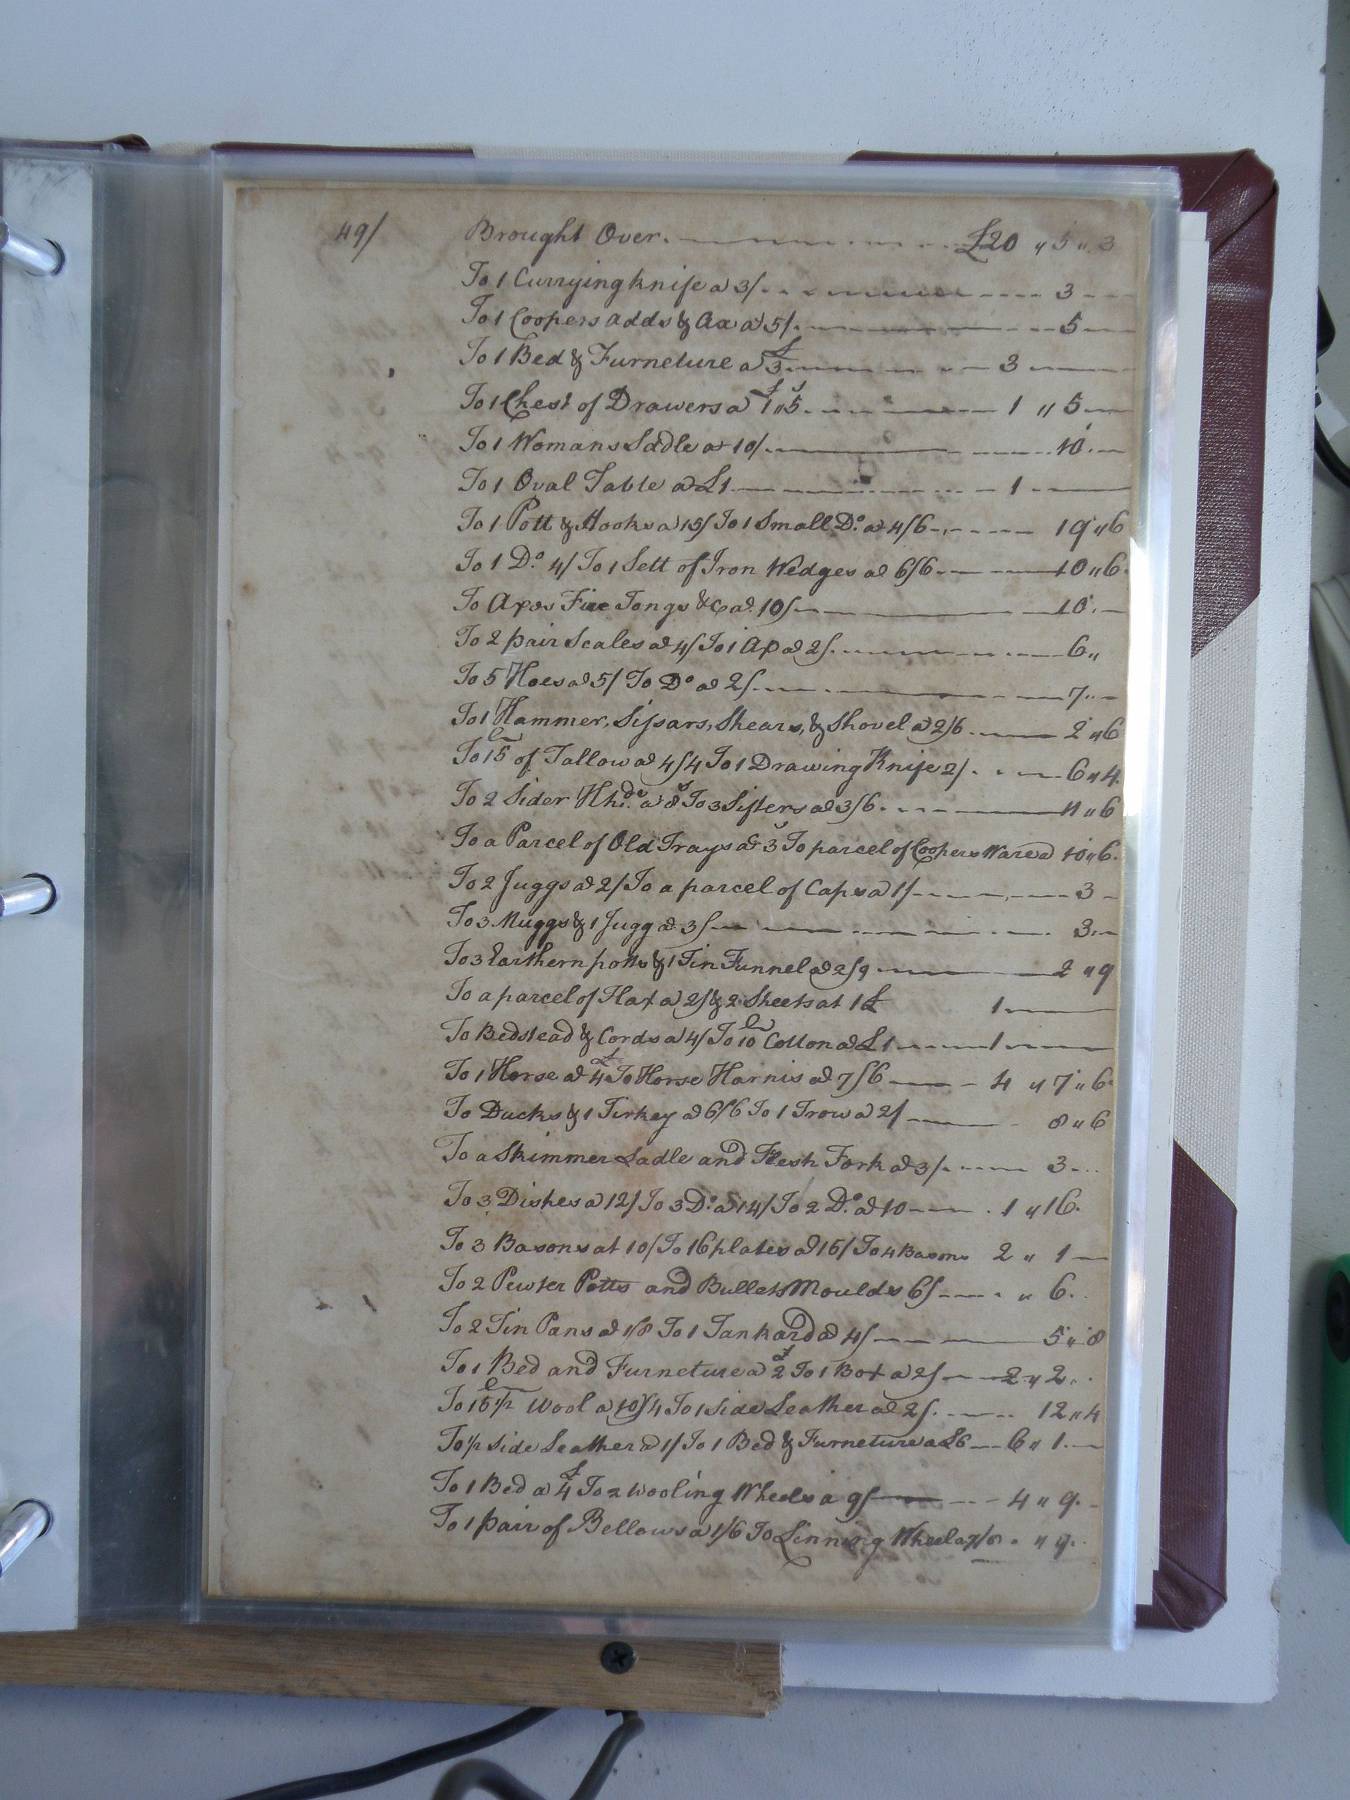 49/ Brought Over. £20 " 5 " 3
To 1 Currying knife a 3/. 3
To 1 Coopers adds & Ax a 5/. 5
To 1 Bed & Furneture a £3 3
To 1 Chest of Drawers a £1 " 5s 1 " 5
To 1 Womans Sadle at 10/ 10
To 1 Oval Table ad £1 1
To 1 Pott & Hooks a 15/ To 1 Small Do. at 4/6 19 " 6
To 1 Do. 4/ To 1 Sett of Iron Wedges ad 6/6 10 " 6
To Fire Tongs &c ad. 10/ 10
To 2 pair Scales ad 4/ To 1 Ax ad 2/. 6 "
To 5 Hoes ad 5/ To Do ad 2/. 7 "
To 1 Hammer, Sissars, Shears, & Shovel ad 2/6. 2 " 6
To 15 l of Tallow ad 4/4 To 1 Drawing Knife 2/. 6 " 4
To 2 Sider Hhds. a 8s To 3 Sifters ad 3/6. 11 " 6
To a Parcel of Old Trays ad 3s To parcel of Coopers Ware ad 10 " 6.
To 2 Juggs ad 2/ To a parcel of Caps a 1/ 3
To 3 Muggs & 1 Jugg ad 3/ 3
To 3 Earthern potts & 1 Tin Funnel ad 2/9 2 " 9
To a parcel of Flax a 2/ & 2 Sheets at 1£ 1
To Bedstead & Cords a 4/ To 10 l Cotton ad £1 1
To 1 Horse ad £4 To Horse Harnis ad 7/6 4 " 7 " 6
To Ducks & 1 Turkey ad 6/6 To 1 Trow a 2/ 8 " 6
To a Skimmer Ladle and Flesh Fork ad 3/. 3
To 3 Dishes a 12/ To 3 Do. a 14/ To 2 Do. ad 10 1 " 16
To 3 Basons at 10/ To 16 plates ad 15/ To 4 Basons 2 " 1
To 2 Pewter Potts and Bullets Moulds 6/ " 6
To 2 Tin Pans ad 1/8 To 1 Tankard ad 4/ 5 " 8
To 1 Bed and Furneture a £2 To 1 Box a 2/ 2 " 2
To 15 1/2 l Wool a 10/4 To 1 side Leather ad 2/. 12 " 4
To 1/2 side Leather ad 1/ To 1 Bed & Furneture a £6 6 " 1
To 1 Bed a £4 To 2 wooling Wheels a 9/ 4 " 9
To 1 pair of Bellows a 1/6 To Linning Wheel a 7/6 " 9